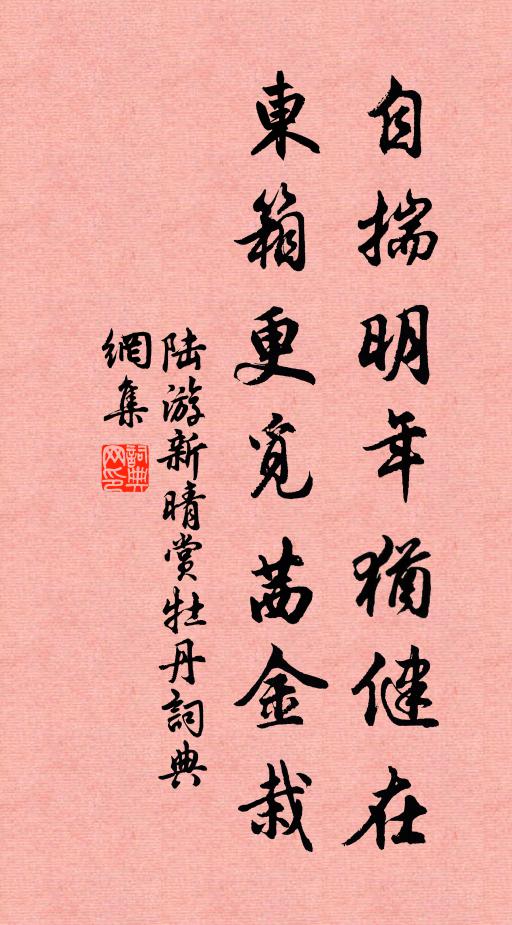 自揣明年猶健在
東箱更覓茜金栽
陆游新晴賞牡丹詞典
網集
詞典网印